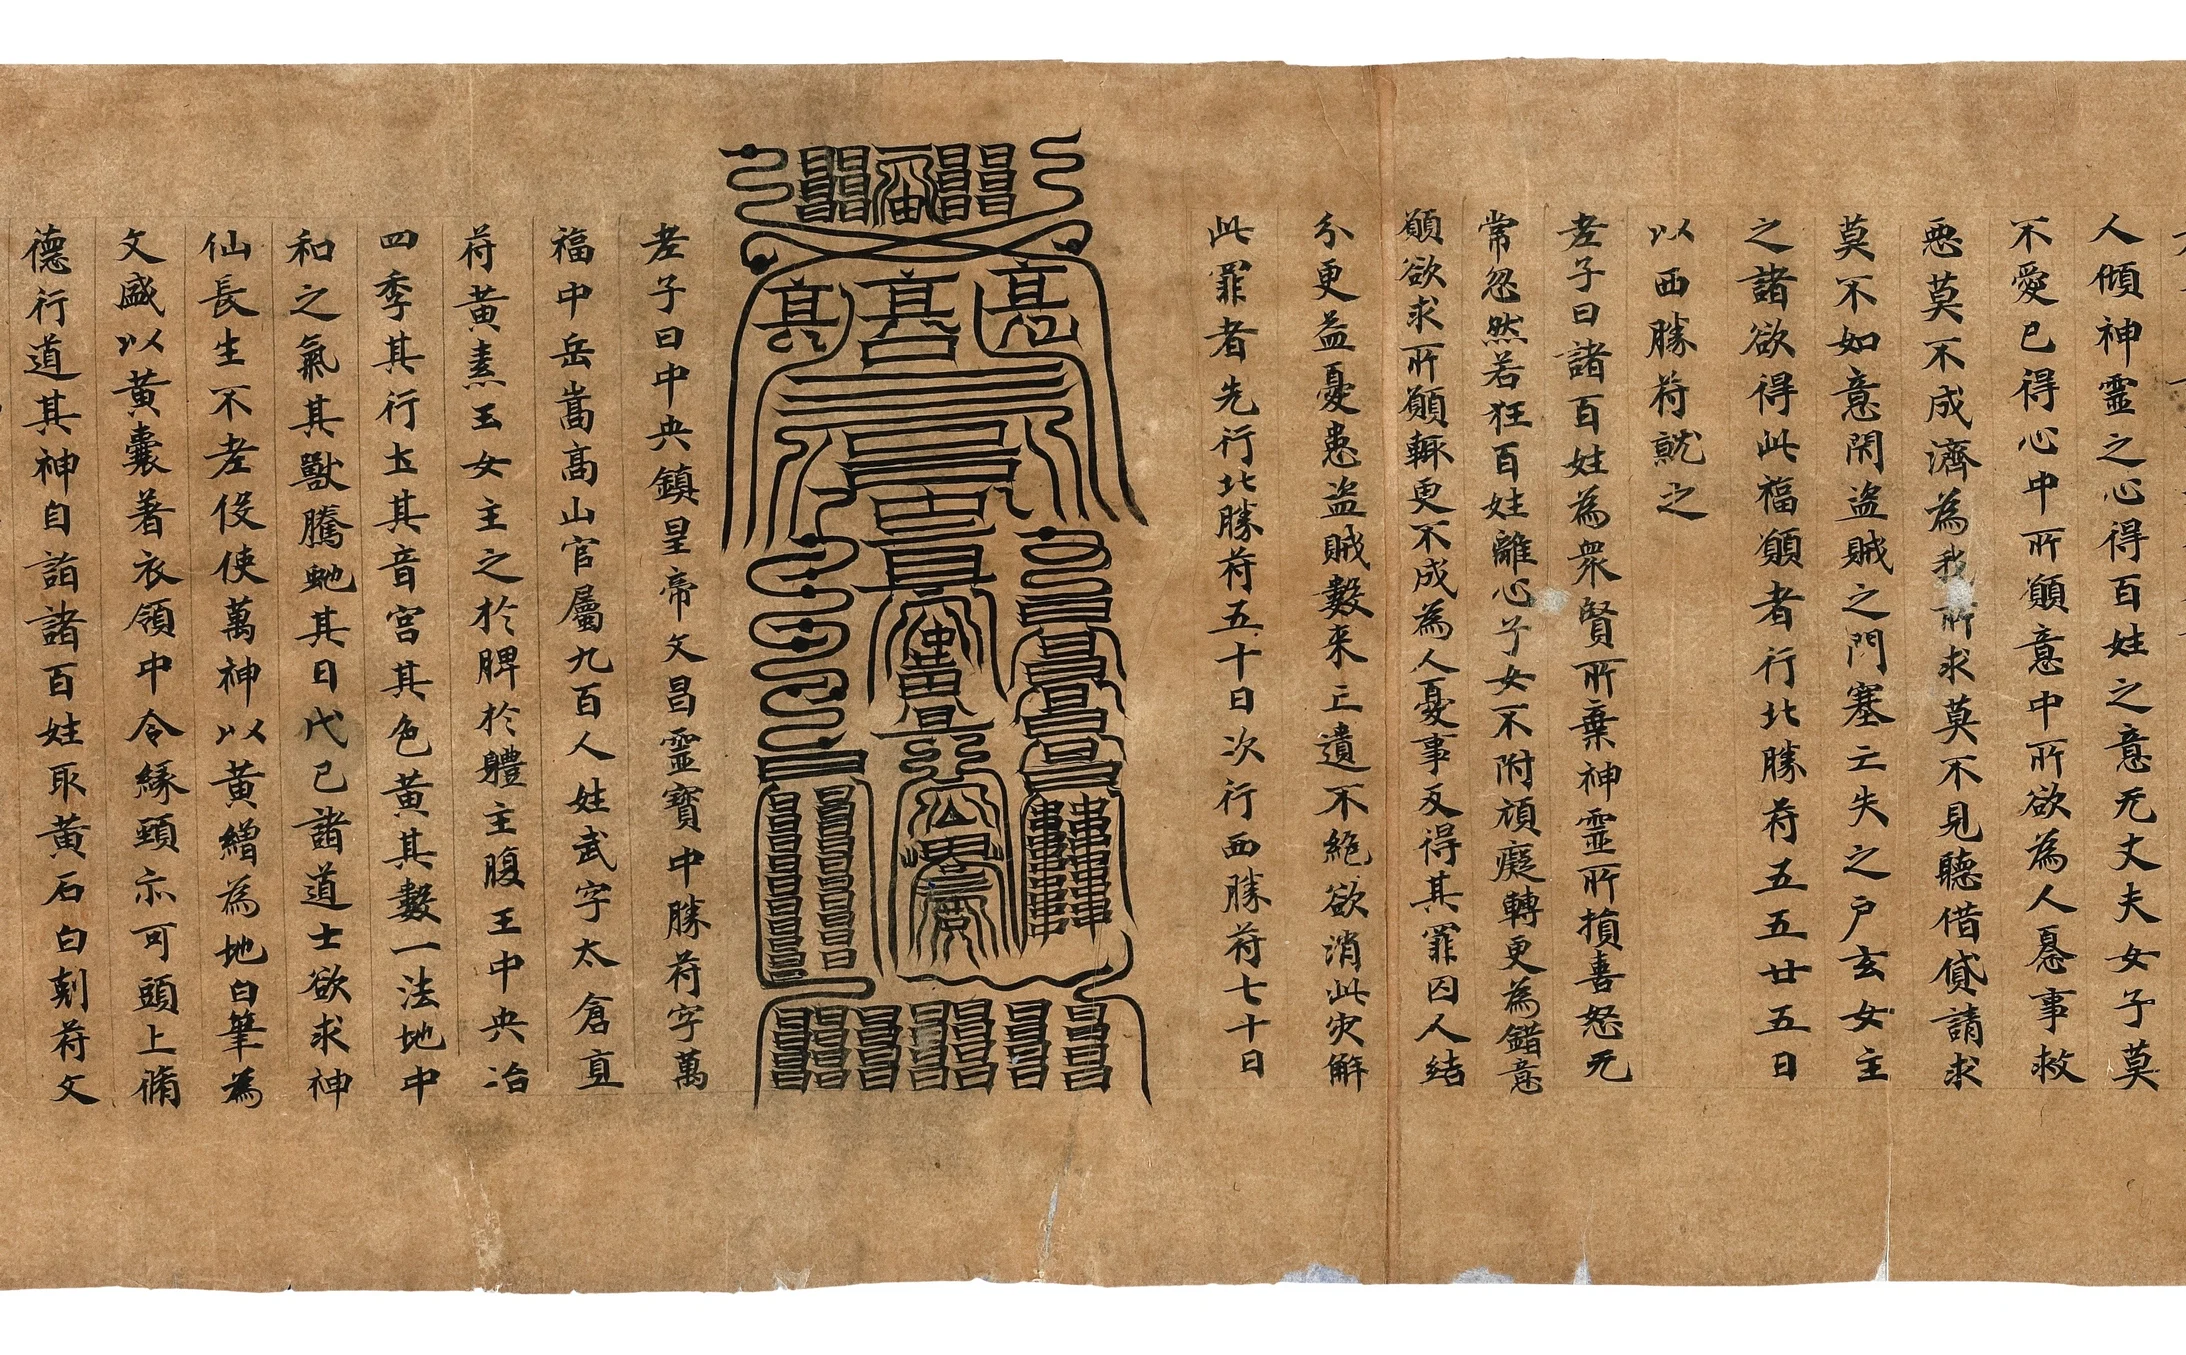 人傾神靈之心得百姓之意无丈夫女子莫
不愛已得心中所願意中所欲為人憂事救
惡莫不成濟為我所求莫不見聽借貸請求
莫不如意閇盜賊之門塞亡失之戶玄女主
之諸欲得此福願者行北勝苻五五廿五日
以西勝苻就之
老子曰諸百姓為衆賢所棄神靈所損喜怒无
常忽然若狂百姓離心子女不附頑癡轉更為錯意
願欲求所願輙更不成為人憂事反得其罪囚人結
分更益憂患盜賊數来亡遺不絕欲消此灾解
此罪者先行北勝苻五十日次行西勝苻七十日
老子曰中央鎮星帝文昌靈寶中勝苻字萬
福中岳嵩高山官屬九百人姓武字太倉直
苻黃素玉女主之於脾於體主腹王中央治
四季其行土其音宮其色黃其數一法地中
和之氣其獸騰虵其日戊己諸道士欲求神
仙長生不老役使萬神以黃繒為地白筆為
文盛以黃囊著衣領中令緣頸亦可頭上脩
德行道其神自詣諸百姓取黃石白刻苻文